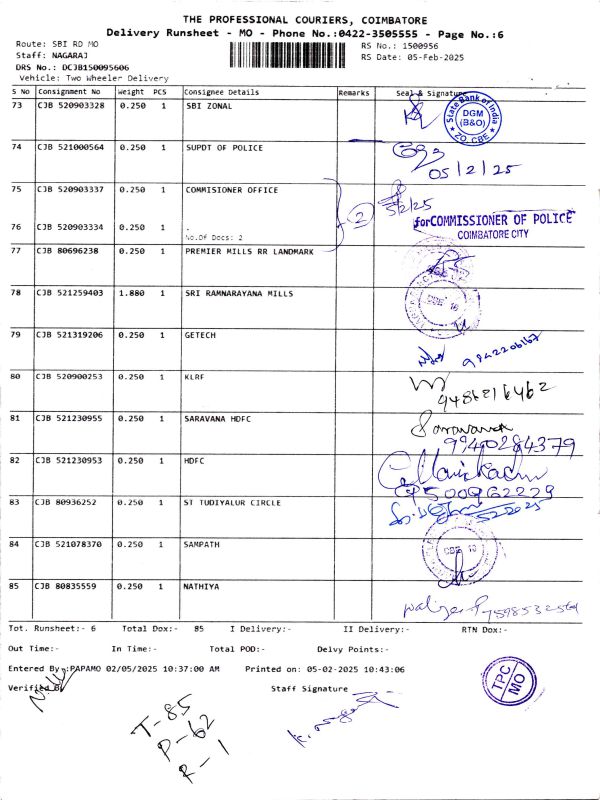 THE PROFESSIONAL COURIERS, COIMBATORE
Delivery Runsheet - MO - Phone No.:0422-3505555 - Page No.:6
Route: SBI RD MO
RS No.: 1500956
Staff: NAGARAJ
RS Date: 05-Feb-2025
DRS No.: DCJB150095606
Vehicle: Two Wheeler Delivery
S No Consignment No Weight PCS Consignee Details Remarks Seal & Signature
73 CJB 520903328 0.250 1 SBI ZONAL
State Bank of India
DGM
(B&O)
ZO, CBE
74 CJB 521000564 0.250 1 SUPDT OF POLICE
05/2/25
75 CJB 520903337 0.250 1 COMMISIONER OFFICE
2
5/2/25
76 CJB 520903334 0.250 1 .
for COMMISSIONER OF POLICE
No.Of Docs: 2
COIMBATORE CITY
77 CJB 80696238 0.250 1 PREMIER MILLS RR LANDMARK
78 CJB 521259403 1.880 1 SRI RAMNARAYANA MILLS
79 CJB 521319206 0.250 1 GETECH
9942206167
80 CJB 520900253 0.250 1 KLRF
9486216462
81 CJB 521230955 0.250 1 SARAVANA HDFC
Saravanan
9940284379
82 CJB 521230953 0.250 1 HDFC
9500962229
83 CJB 80936252 0.250 1 ST TUDIYALUR CIRCLE
84 CJB 521078370 0.250 1 SAMPATH
85 CJB 80835559 0.250 1 NATHIYA
Tot. Runsheet:- 6 Total Dox:- 85 I Delivery:- II Delivery:- RTN Dox:-
Out Time:- In Time:- Total POD:- Delvy Points:-
Entered By-:PAPAMO 02/05/2025 10:37:00 AM Printed on: 05-02-2025 10:43:06
Verified By
Staff Signature
TPC
MO
T-85
P-62
R-1